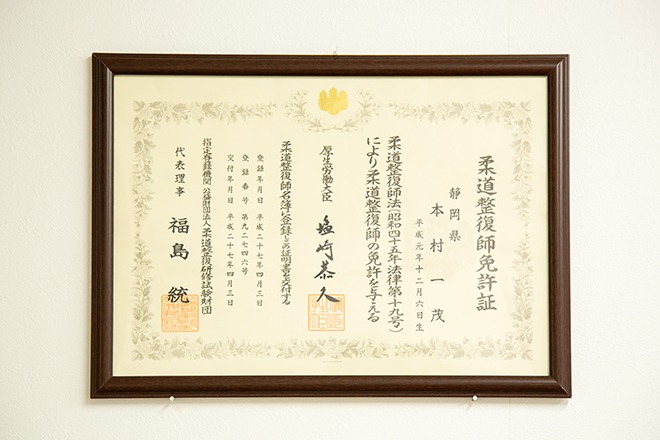 柔道整復師免許証
静岡県
本村一茂
平成元年十二月六日生
柔道整復師法(昭和四十五年法律第十九号)
により柔道整復師の免許を与える
厚生労働大臣 塩崎恭久
柔道整復師名簿に登録しこの証明書を交付する
登録年月日 平成二十七年四月三日
登録番号 第九二七四六号
交付年月日 平成二十七年四月三日
指定登録機関 公益財団法人柔道整復研修試験財団
代表理事 福島統